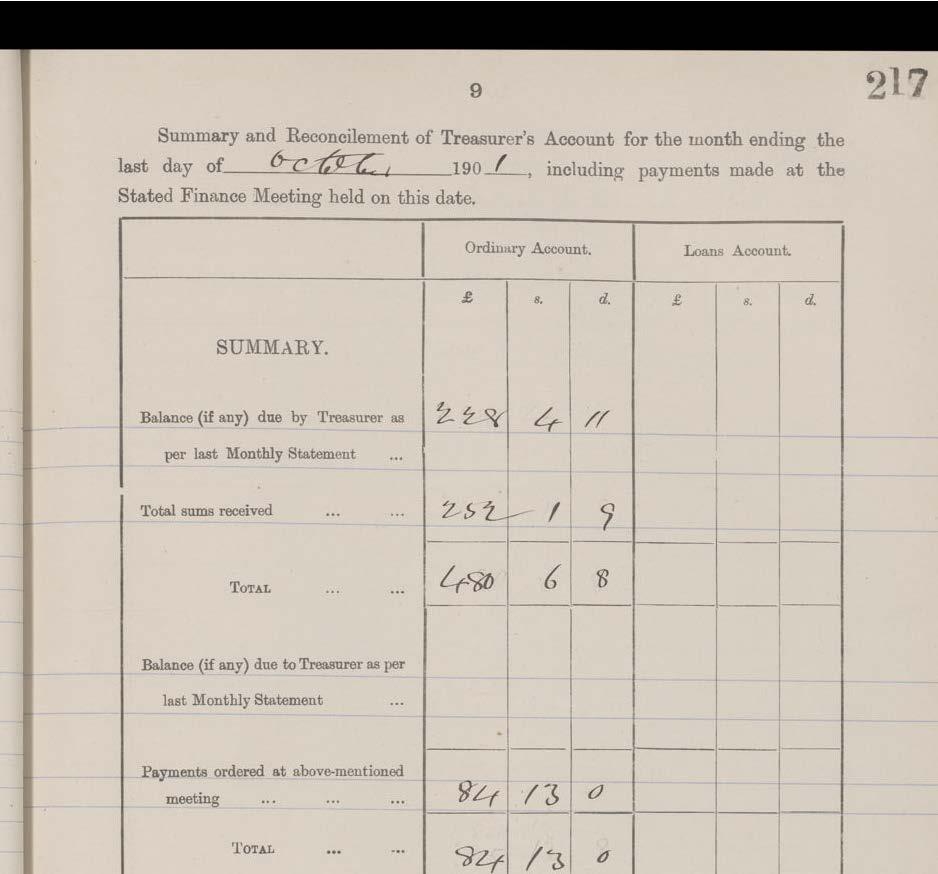 217
9
Summary and Reconcilement of Treasurer's Account for the month ending the
last day of October 1901, including payments made at the
Stated Finance Meeting held on this date.
Ordinary Account. Loans Account.
£ s. d. £ s. d.
SUMMARY.
Balance (if any) due by Treasurer as 228 4 11
per last Monthly Statement ...
Total sums received ... ... 252 1 9
TOTAL ... ... 480 6 8
Balance (if any) due to Treasurer as per
last Monthly Statement ...
Payments ordered at above-mentioned
meeting ... ... ... 84 13 0
TOTAL ... ... 84 13 0